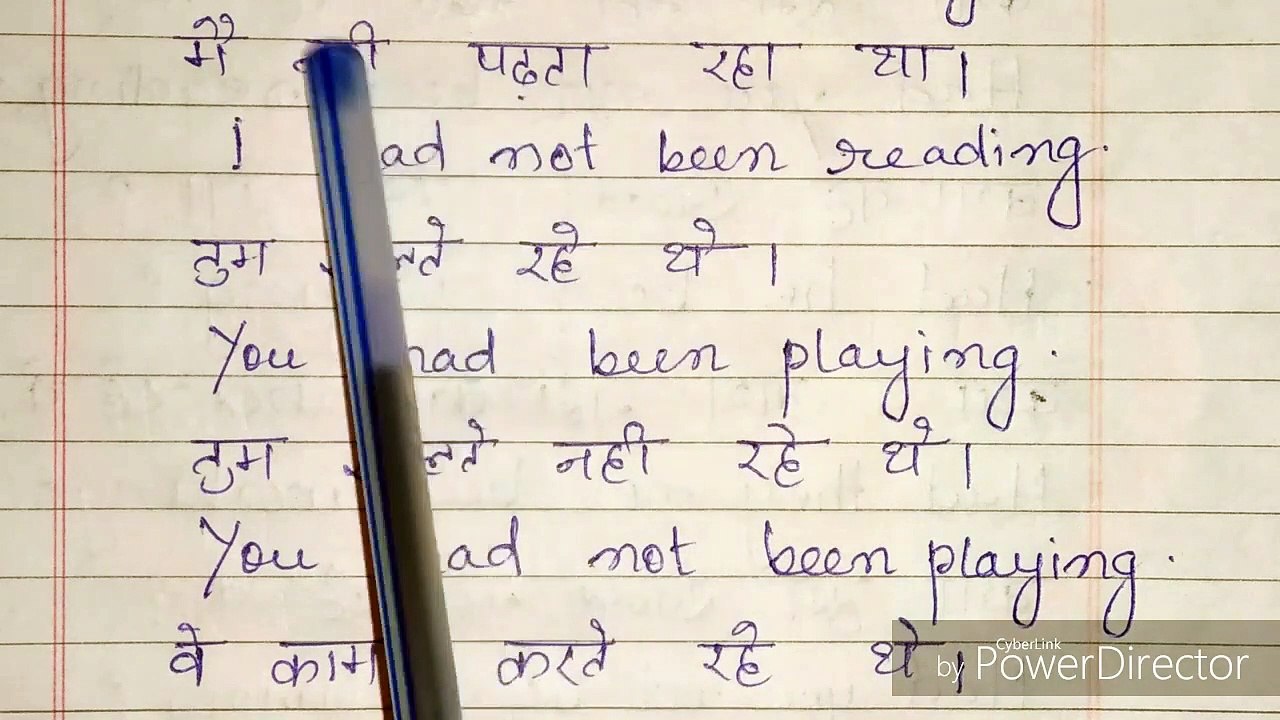 मै पढ़ता रहा था।
I had not been reading.
तुम रहे थे।
You had been playing.
तुम नही रहे थे।
You had not been playing.
वे काम करते रहे थे।
CyberLink
by PowerDirector